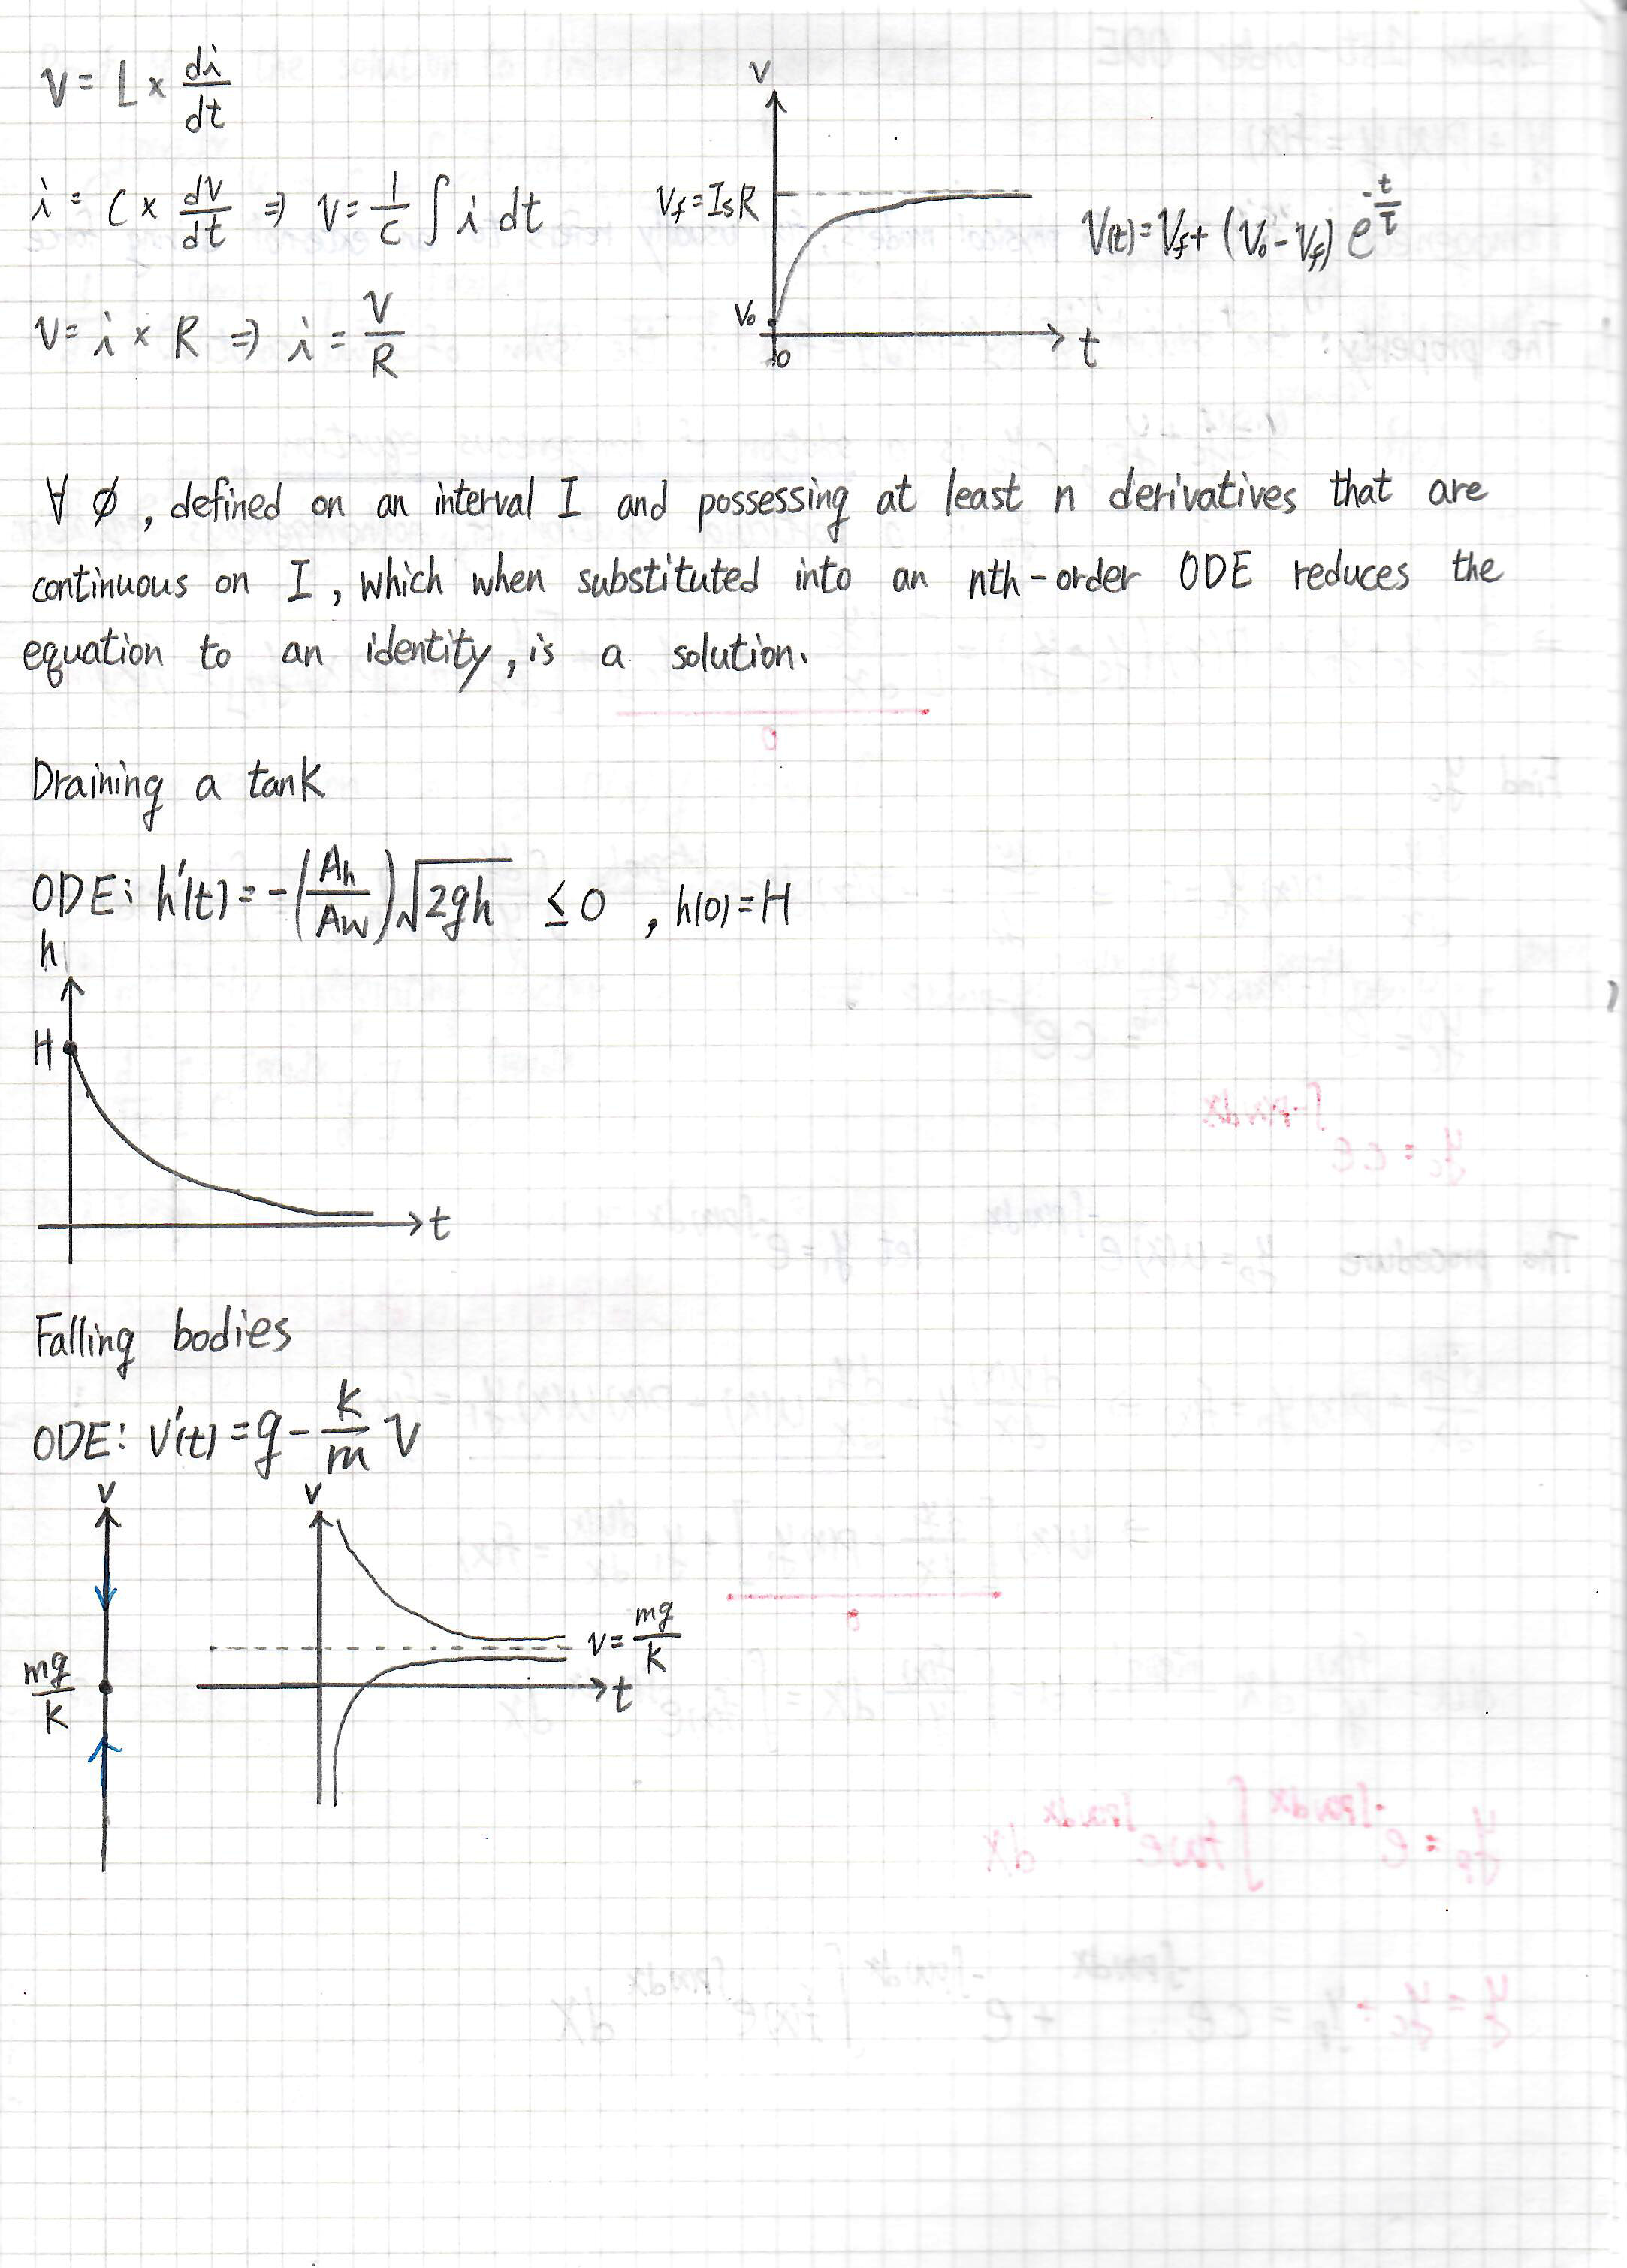 V = L × di/dt
i = C × dV/dt ⇒ V = 1/C ∫ i dt
V = i × R ⇒ i = V/R
V
Vf = IsR
V(t) = Vf + (V₀ - Vf) e^(-t/τ)
V₀
0
t
∀ ϕ, defined on an interval I and possessing at least n derivatives that are
continuous on I, which when substituted into an nth-order ODE reduces the
equation to an identity, is a solution.
Draining a tank
ODE: h'(t) = -(Ah/Aw)√2gh ≤ 0, h(0) = H
h
H
t
Falling bodies
ODE: V'(t) = g - k/m V
V
mg/k
V
V = mg/k
t